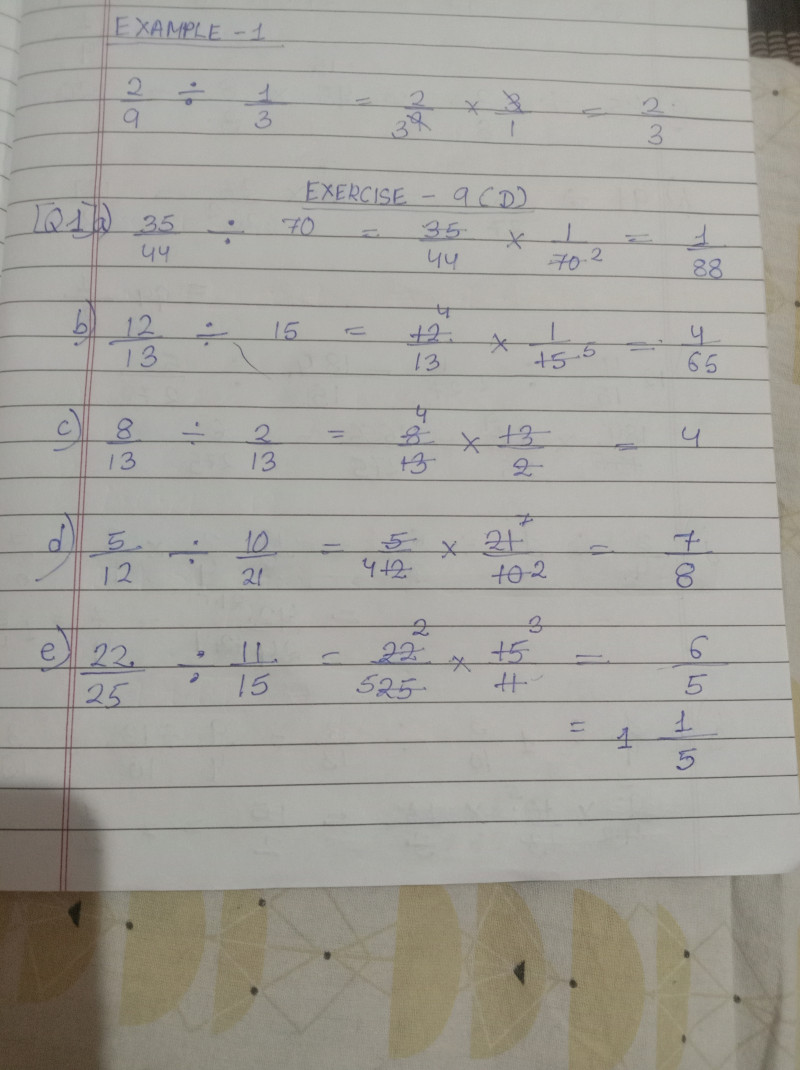 EXAMPLE - 1
2/9 ÷ 1/3 = 2/3 9 × 3/1 = 2/3
EXERCISE - 9 (D)
[Q1] a) 35/44 ÷ 70 = 35/44 × 1/70 2 = 1/88
b) 12/13 ÷ 15 = 12 4/13 × 1/15 5 = 4/65
c) 8/13 ÷ 2/13 = 8 4/13 × 13/2 = 4
d) 5/12 ÷ 10/21 = 5/4 12 × 21 7/10 2 = 7/8
e) 22/25 ÷ 11/15 = 22 2/5 25 × 15 3/11 = 6/5
= 1 1/5